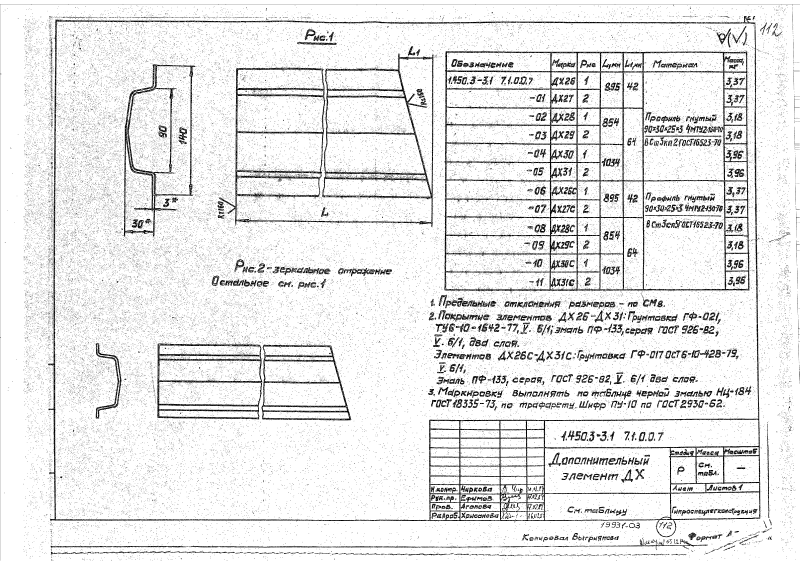 112
Рис.1
L1
90
140
3*
30*
L
Рис.2 - зеркальное отражение
Остальное см. рис.1
Обозначение Марка Рис L,мм L1,мм Материал Масса, кг
1.450.3-3.1 7.1.0.0.7 ДХ26 1 895 42 3,37
-01 ДХ27 2 3,37
-02 ДХ28 1 854 64 Профиль гнутый 3,18
-03 ДХ29 2 3,18
-04 ДХ30 1 1034 3,96
-05 ДХ31 2 3,96
-06 ДХ26С 1 895 42 Профиль гнутый 3,37
-07 ДХ27С 2 3,37
-08 ДХ28С 1 854 64 3,18
-09 ДХ29С 2 3,18
-10 ДХ30С 1 1034 3,96
-11 ДХ31С 2 3,96
1. Предельные отклонения размеров - по СМ8.
2. Покрытие элементов ДХ26-ДХ31: Грунтовка ГФ-021,
ТУ6-10-1642-77, V. б/1; эмаль ПФ-133, серая ГОСТ 926-82,
V. б/1, два слоя.
Элементов ДХ26С-ДХ31С: Грунтовка ГФ-017 ОСТ6-10-428-79,
V. б/1,
Эмаль ПФ-133, серая, ГОСТ 926-82, V. б/1 два слоя.
3. Маркировку выполнять по таблице черной эмалью НЦ-184
ГОСТ 18335-73, по трафарету. Шифр ПУ-10 по ГОСТ 2930-62.
1.450.3-3.1 7.1.0.0.7
Дополнительный
элемент ДХ
Стадия Масса Масштаб
Р См. табл. —
Лист Листов 1
Н.контр. Чиркова
Рук.пр. Ефимов
Пров. Агапова
Разраб. Хрисанова
См. таблицу
Гипроспецлегконструкция
19931-03
112
Копировал Выгриянова
Формат А